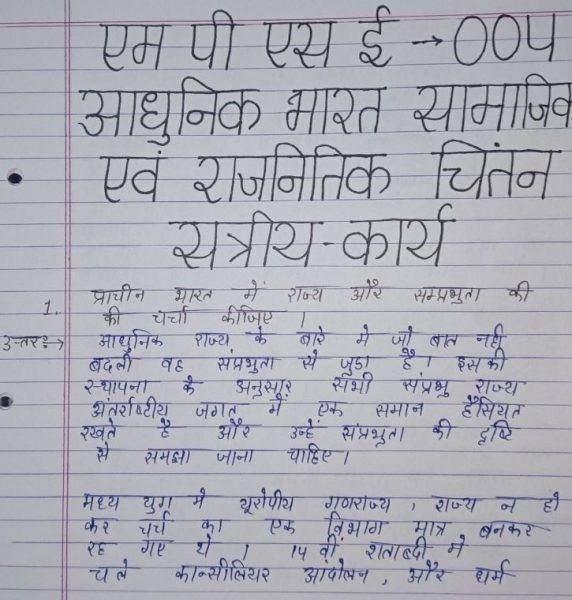 एम पी एस ई → 004
आधुनिक भारत सामाजिक
एवं राजनितिक चिंतन
सत्रीय-कार्य
1. प्राचीन भारत में राज्य और सम्प्रभुता की
की चर्चा कीजिए ।
उत्तरः→ आधुनिक राज्य के बारे मे जो बात नही
बदली वह संप्रभुता से जुड़ा है। इसकी
स्थापना के अनुसार सभी संप्रभु राज्य
अंतर्राष्टीय जगत में एक समान हैसियत
रखते है और उन्हें संप्रभुता की दृष्टि
से समझा जाना चाहिए।
मध्य युग मे यूरोपीय गणराज्य, राज्य न हो
कर चर्च का एक विभाग मात्र बनकर
रह गए थे । 14 वीं शताब्दी मे
चले कान्सीलियर आंदोलन, और धर्म